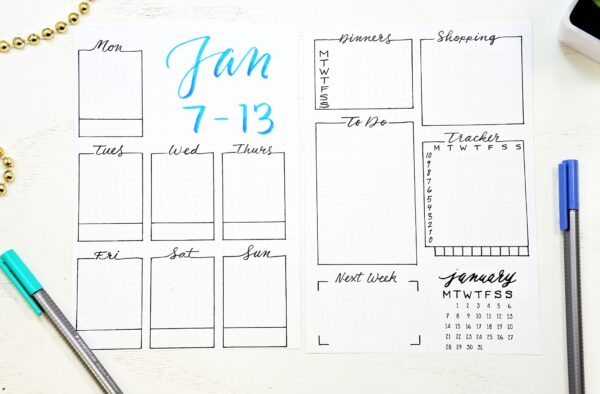 Mon
Jan
7-13
Tues Wed Thurs
Fri Sat Sun
Dinners
M
T
W
T
F
S
S
Shopping
To Do
Tracker
M T W T F S S
10
9
8
7
6
5
4
3
2
1
0
Next Week
january
M T W T F S S
1 2 3 4 5 6
7 8 9 10 11 12 13
14 15 16 17 18 19 20
21 22 23 24 25 26 27
28 29 30 31